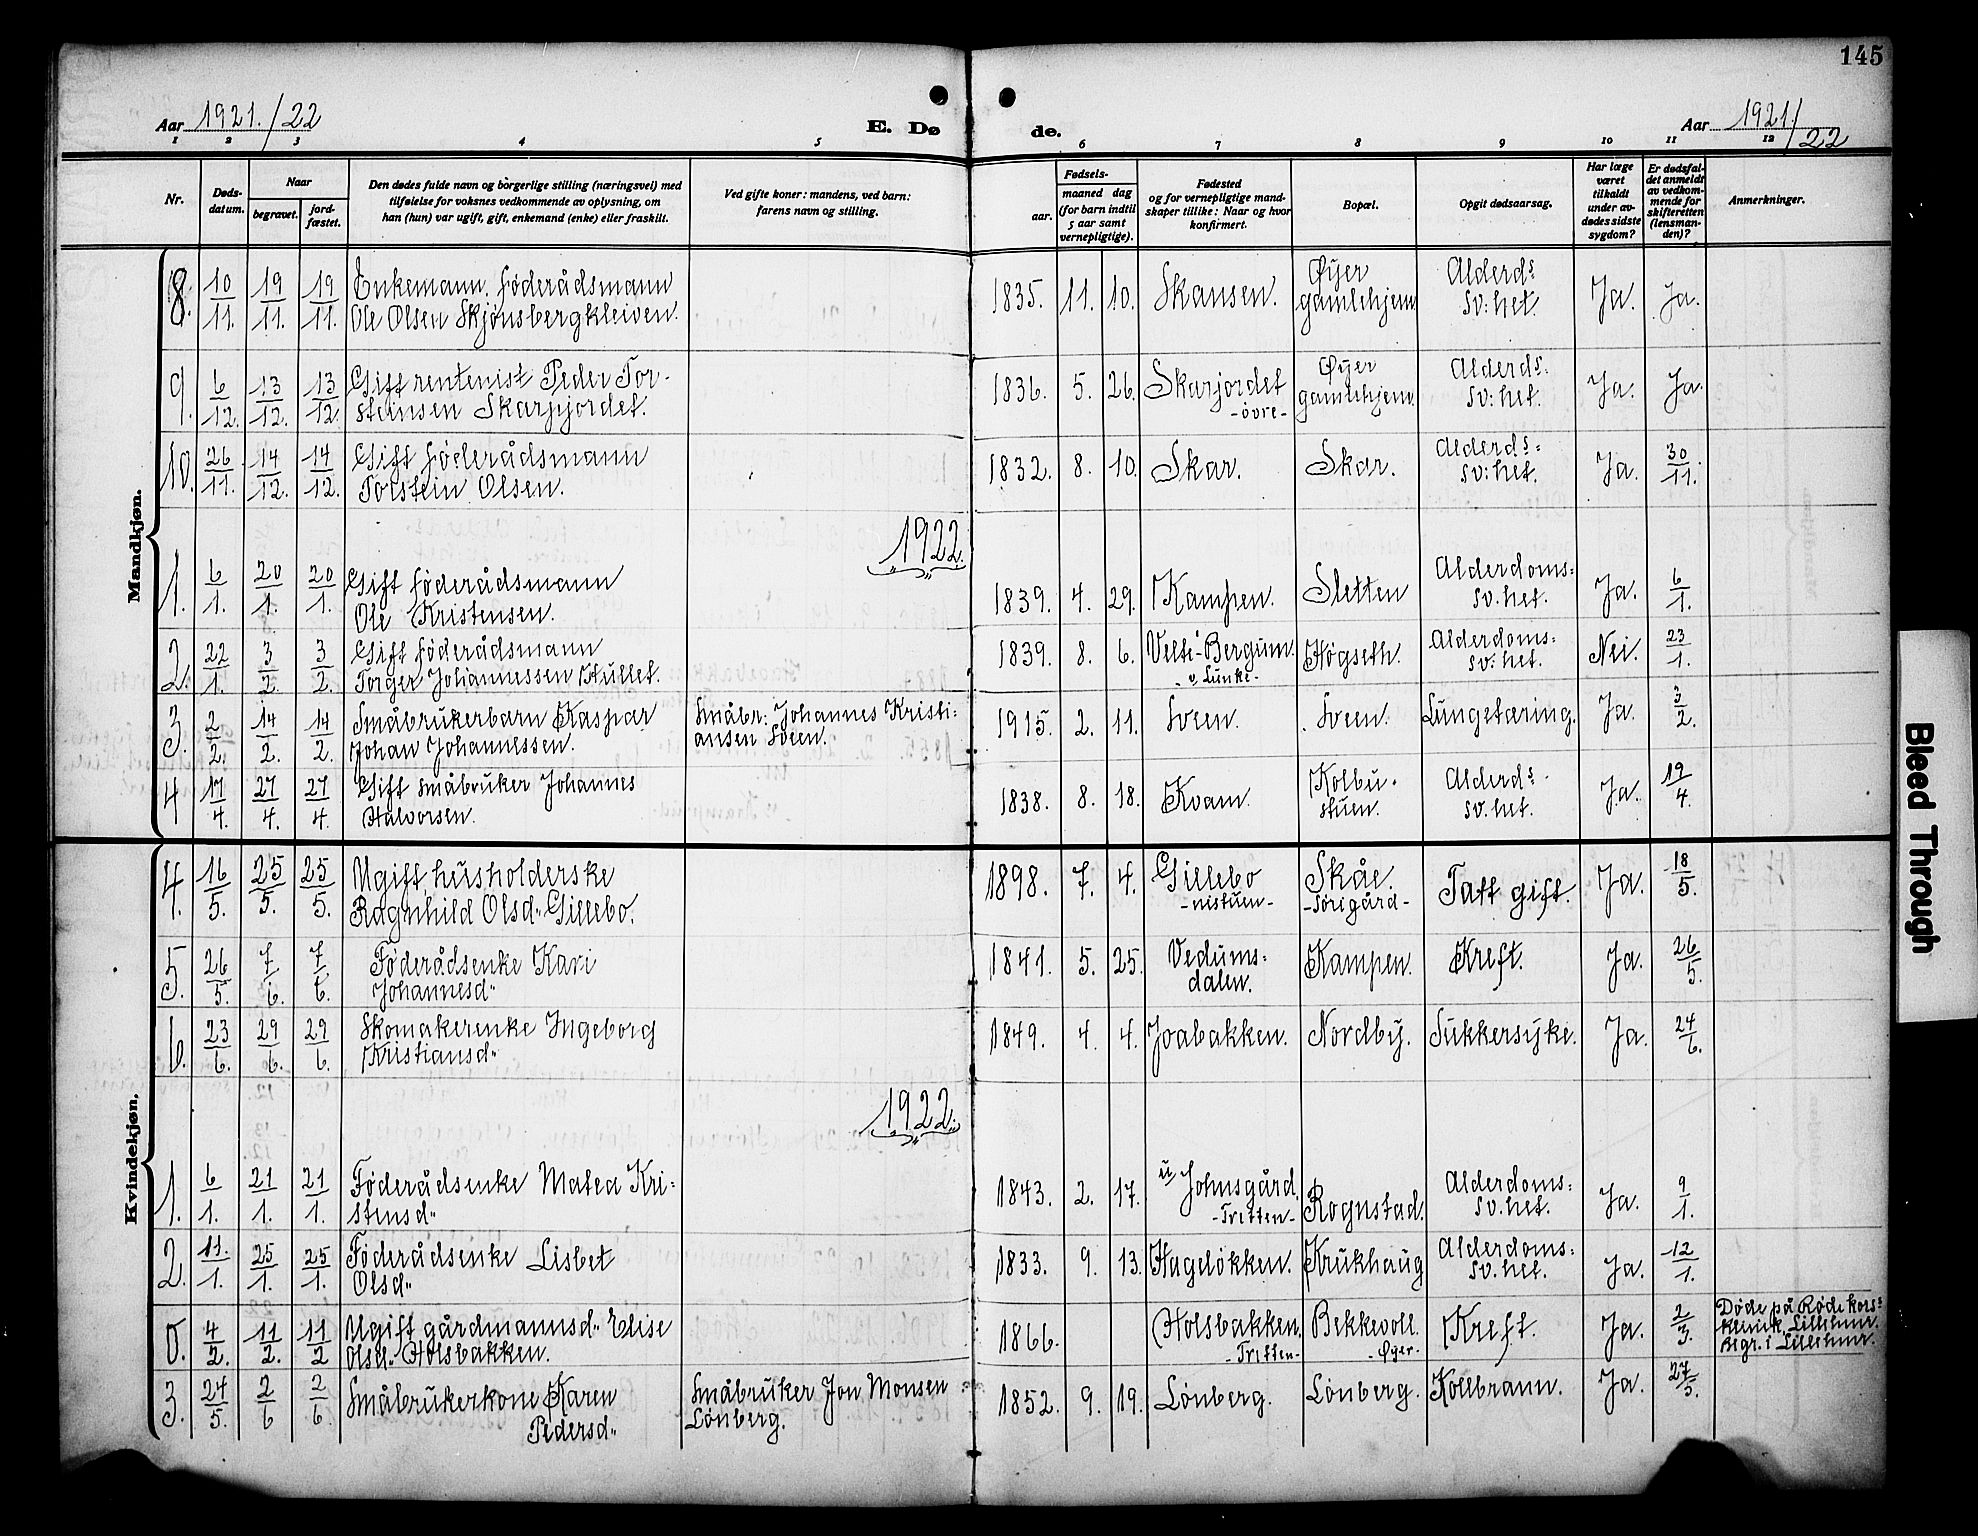 145
Aar 1921./22
E. Døde.
Aar 1921/22
1 2 3 4 5 6 7 8 9 10 11 12
Nr.
Døds-datum.
Naar
begravet.
jord-fæstet.
Den dødes fulde navn og borgerlige stilling (næringsvei) med
tilføielse for voksnes vedkommende av oplysning, om
han (hun) var ugift, gift, enkemand (enke) eller fraskilt.
Ved gifte koner: mandens, ved barn:
farens navn og stilling.
Fødsels-
aar.
maaned dag
(for barn indtil
5 aar samt
vernepligtige).
Fødested
og for vernepligtige mand-
skaper tillike: Naar og hvor
konfirmert.
Bopæl.
Opgit dødsaarsag.
Har læge
været
tilkaldt
under av-
dødes sidste
sygdom?
Er dødsfal-
det anmeldt
av vedkom-
mende for
skifteretten
(lensman-
den)?
Anmerkninger.
Mandkjøn.
8. 10/11. 19/11. 19/11. Enkemann. föderådsmann
Ole Olsen Skjönsbergkleiven. 1835. 11. 10. Skansen. Øyer
gamlehjem Alderds
sv:het. Ja. Ja.
9. 6/12. 13/12. 13/12. Gift rentenist Peder Tor-
steinsen Skarpjordet. 1836. 5. 26. Skarjordet
-övre- Øyer
gamlehjem. Alderds:
sv:het. Ja. Ja.
10. 26/11. 14/12. 14/12. Gift föderådsmann
Torstein Olsen. 1832. 8. 10. Skar. Skar. Alderds:
sv:het. Ja. 30/11.
1922.
1. 6/1. 20/1. 20/1. Gift föderådsmann
Ole Kristensen. 1839. 4. 29. Kampen. Sletten Alderdoms:
sv.het. Ja. 6/1.
2. 22/1. 3/2. 3/2. Gift föderådsmann
Torger Johannessen Hullet. 1839. 8. 6. Velte-Bergum.
-v, Lunke- Högseth. Alderdoms:
sv:het. Nei. 23/1.
3. 2/2. 14/2. 14/2. Småbrukerbarn Kaspar
Johan Johannessen. Småbr: Johannes Kristi:
ansen Sveen. 1915. 2. 11. Sveen. Sveen. Lungetæring. Ja. 3/2.
4 17/4. 27/4. 27/4. Gift småbruker Johannes
Halvorsen. 1838. 8. 18. Kvam. Kolbu-
stuen. Alderds-
sv.het. Ja. 19/4.
Kvindekjøn.
4. 16/5. 25/5. 25/5. Ugift husholderske
Ragnhild Olsd" Gillebo. 1898. 7. 4. Gillebo
-nistuen- Skåe.
-Sörigård- Tatt gift. Ja. 18/5.
5. 26/5. 7/6. 7/6. Föderådsenke Kari
Johannesd" 1841. 5. 25. Vedums:
dalen. Kampen. Kreft. Ja. 26/5.
6. 23/6. 29/6. 29/6. Skomakerenke Ingeborg
Kristiansd" 1849. 4. 4. Joabakken. Nordby. Sukkersyke. Ja. 24/6.
1922.
1. 6/1. 21/1. 21/1. Föderådsenke Matea Kri:
stensd" 1843. 2. 17. u, Johnsgård,
-Tretten- Rognstad. Alderdoms:
sv.het. Ja. 9/1.
2. 11./1. 25/1. 25/1. Föderådsenke Lisbet
Olsd" 1833. 9. 13. Hagelökken. Krukhaug Alderdoms:
sv.het. Ja. 12/1.
0. 4/2. 11/2. 11/2 Ugift gårdmannsd" Elise
Olsd" Holsbakken. 1866. Holsbakken,
-Tretten- Bekkevoll.
-Øyer- Kreft. Ja. 2/3. Døde på Røde kors:
klinik, Lillehmr.
Begr. i Lillehmr.
3. 24/5. 2/6 2/6. Småbrukerkone Karen
Pedersd" Småbruker Jon Monsen
Lönberg. 1852. 9. 19. Lönberg. Lönberg. Kollbrann. Ja. 27/5.
Bleed Through